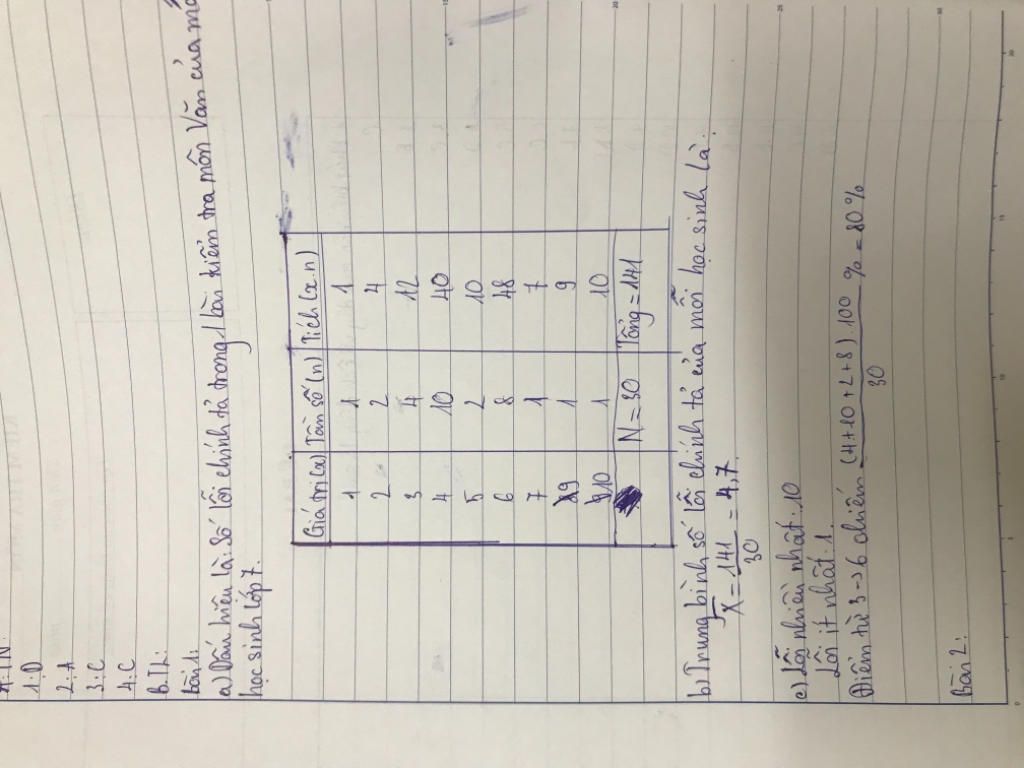 A. TN:
1. D
2. A
3. C
4. C
B. TL:
Bài 1:
a) Dấu hiệu là: Số lỗi chính tả trong 1 bài kiểm tra môn Văn của
học sinh lớp 7.
Giá trị (x) Tần số (n) Tích (x.n)
1 1 1
2 2 4
3 4 12
4 10 40
5 2 10
6 8 48
7 1 7
9 1 9
10 1 10
N = 30 Tổng = 141
b) Trung bình số lỗi chính tả của mỗi học sinh là:
X = 141/30 = 4,7.
c) Lỗi nhiều nhất: 10
Lỗi ít nhất: 1.
Điểm từ 3 → 6 chiếm (4+10+2+8).100/30 % = 80%
Bài 2: